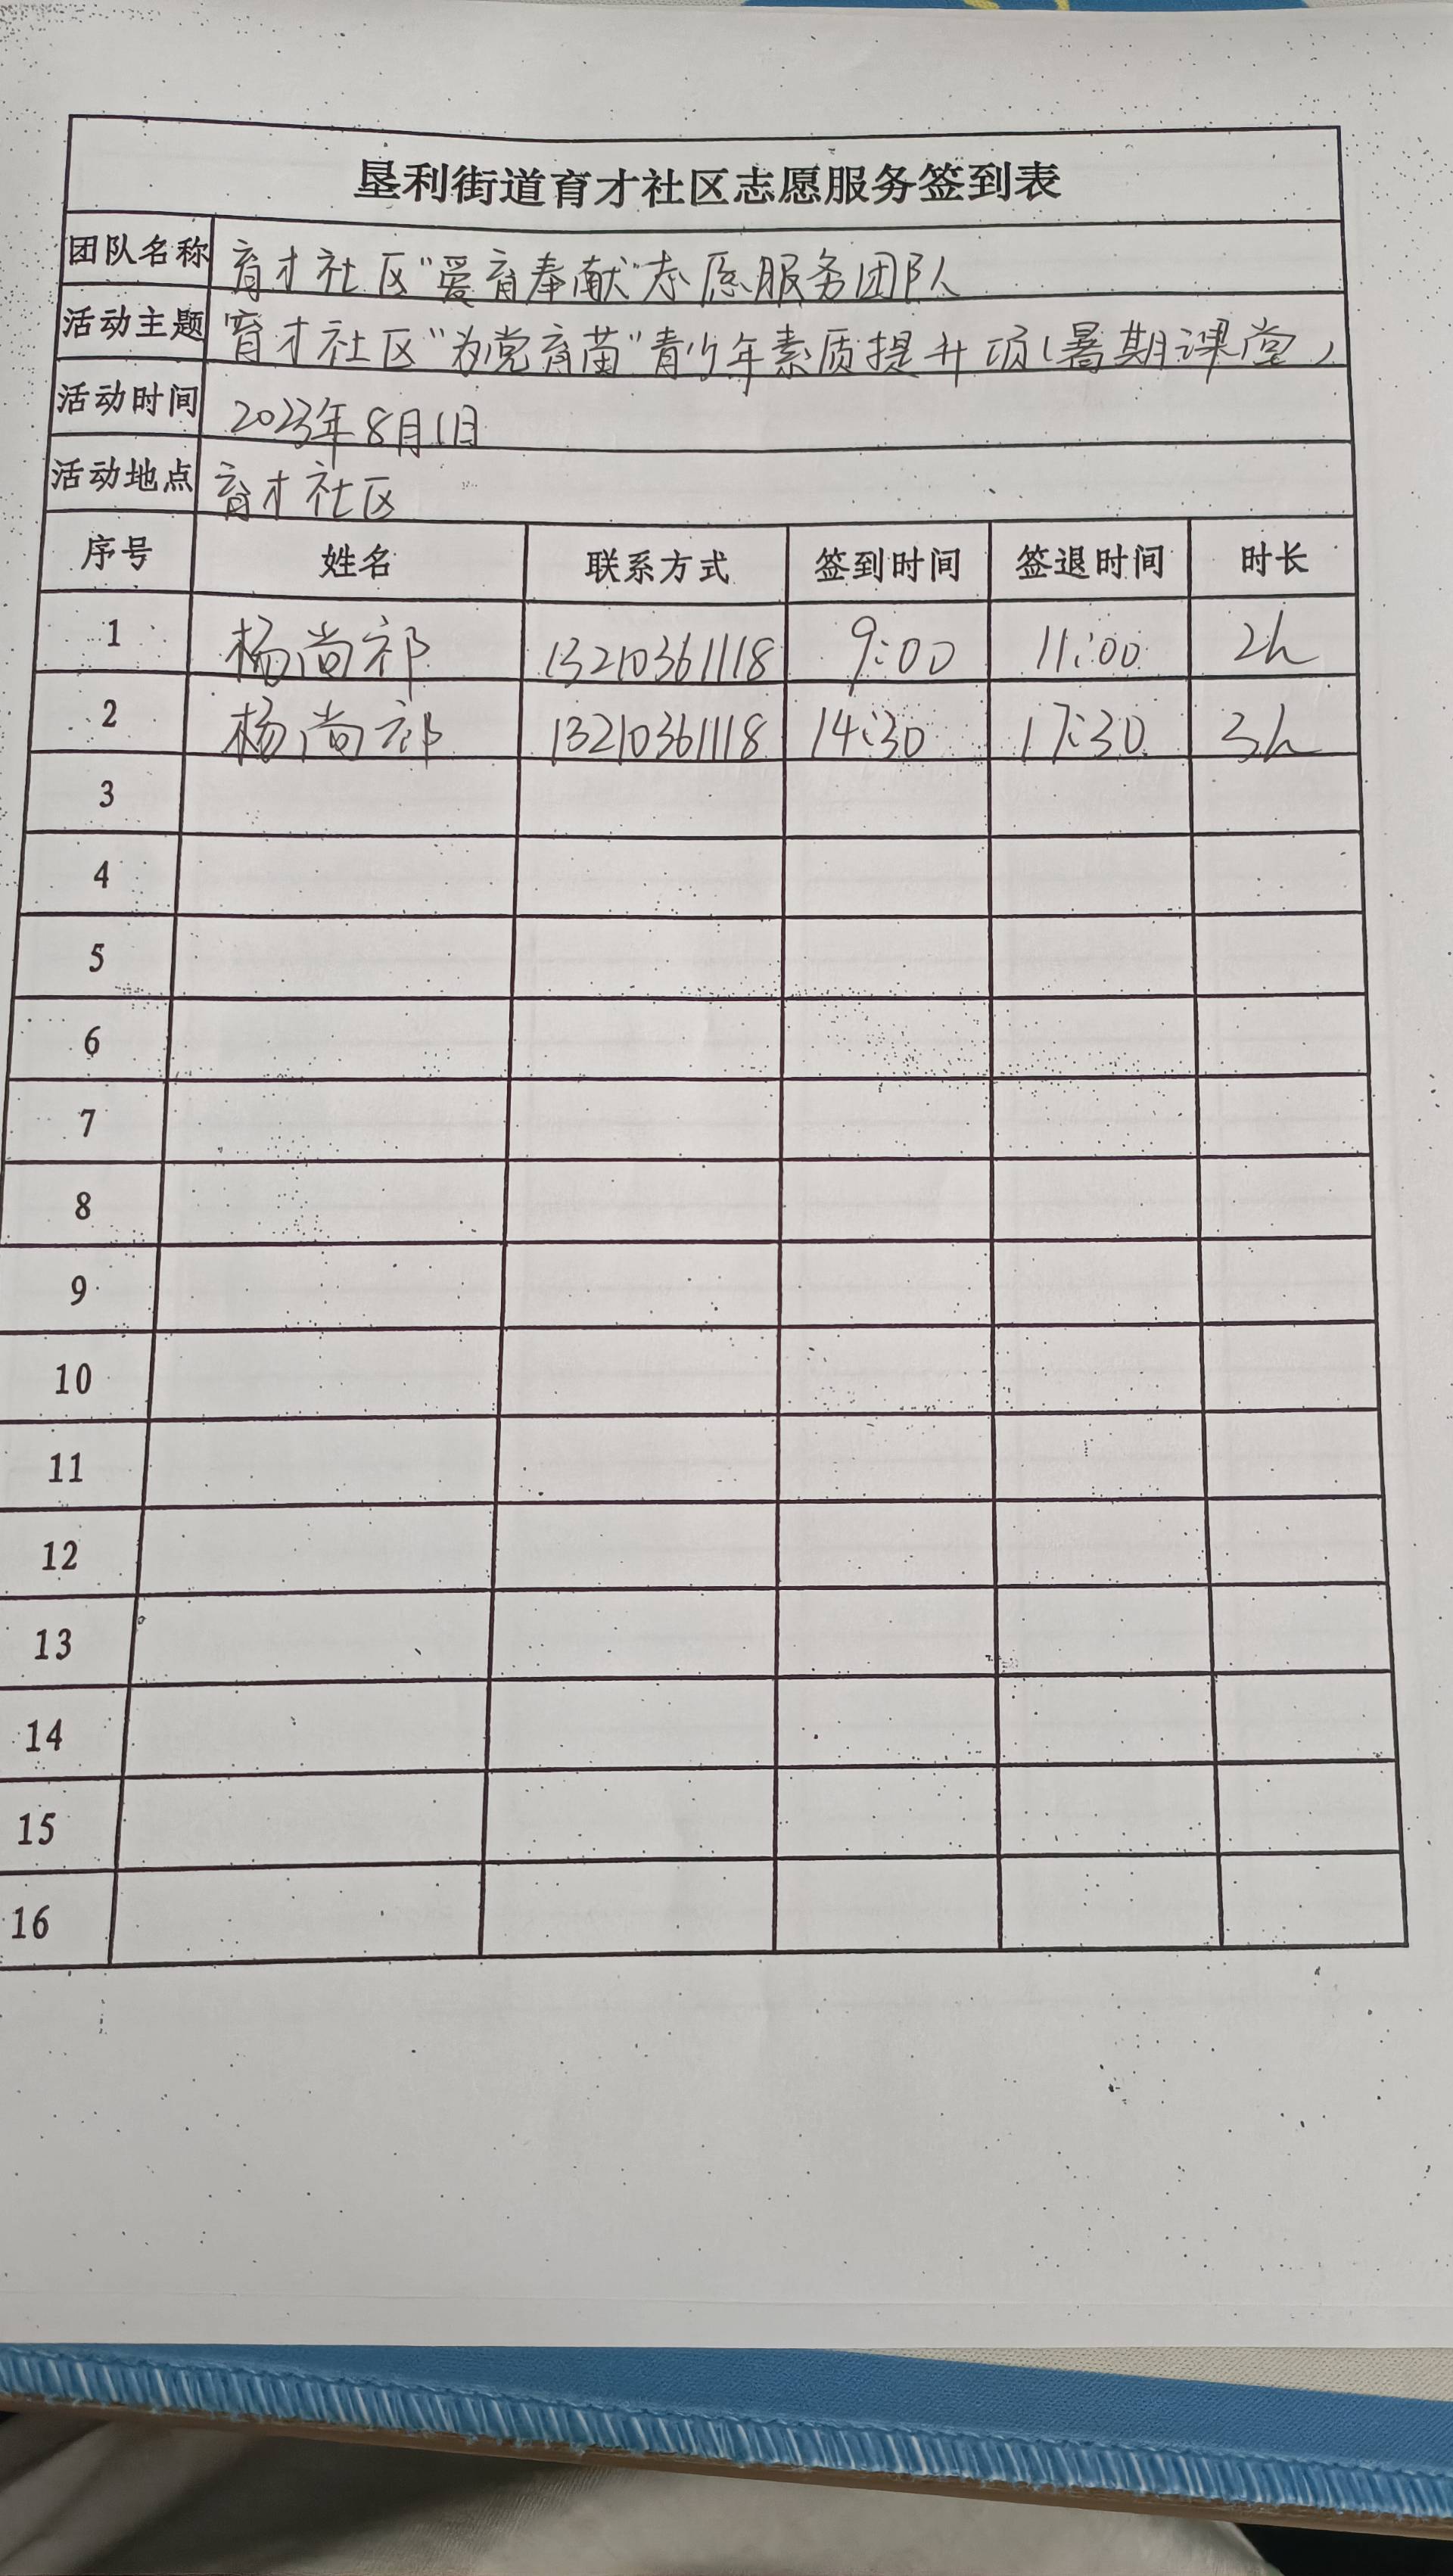 垦利街道育才社区志愿服务签到表
团队名称 育才社区“爱育奉献”志愿服务团队
活动主题 育才社区“为党育苗”青少年素质提升项(暑期课堂)
活动时间 2023年8月1日
活动地点 育才社区
序号 姓名 联系方式 签到时间 签退时间 时长
1 杨尚祁 13210361118 9:00 11:00 2h
2 杨尚祁 13210361118 14:30 17:30 3h
3
4
5
6
7
8
9
10
11
12
13
14
15
16